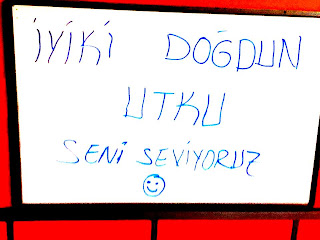 İYİKİ DOĞDUN
UTKU
SENİ SEVİYORUZ